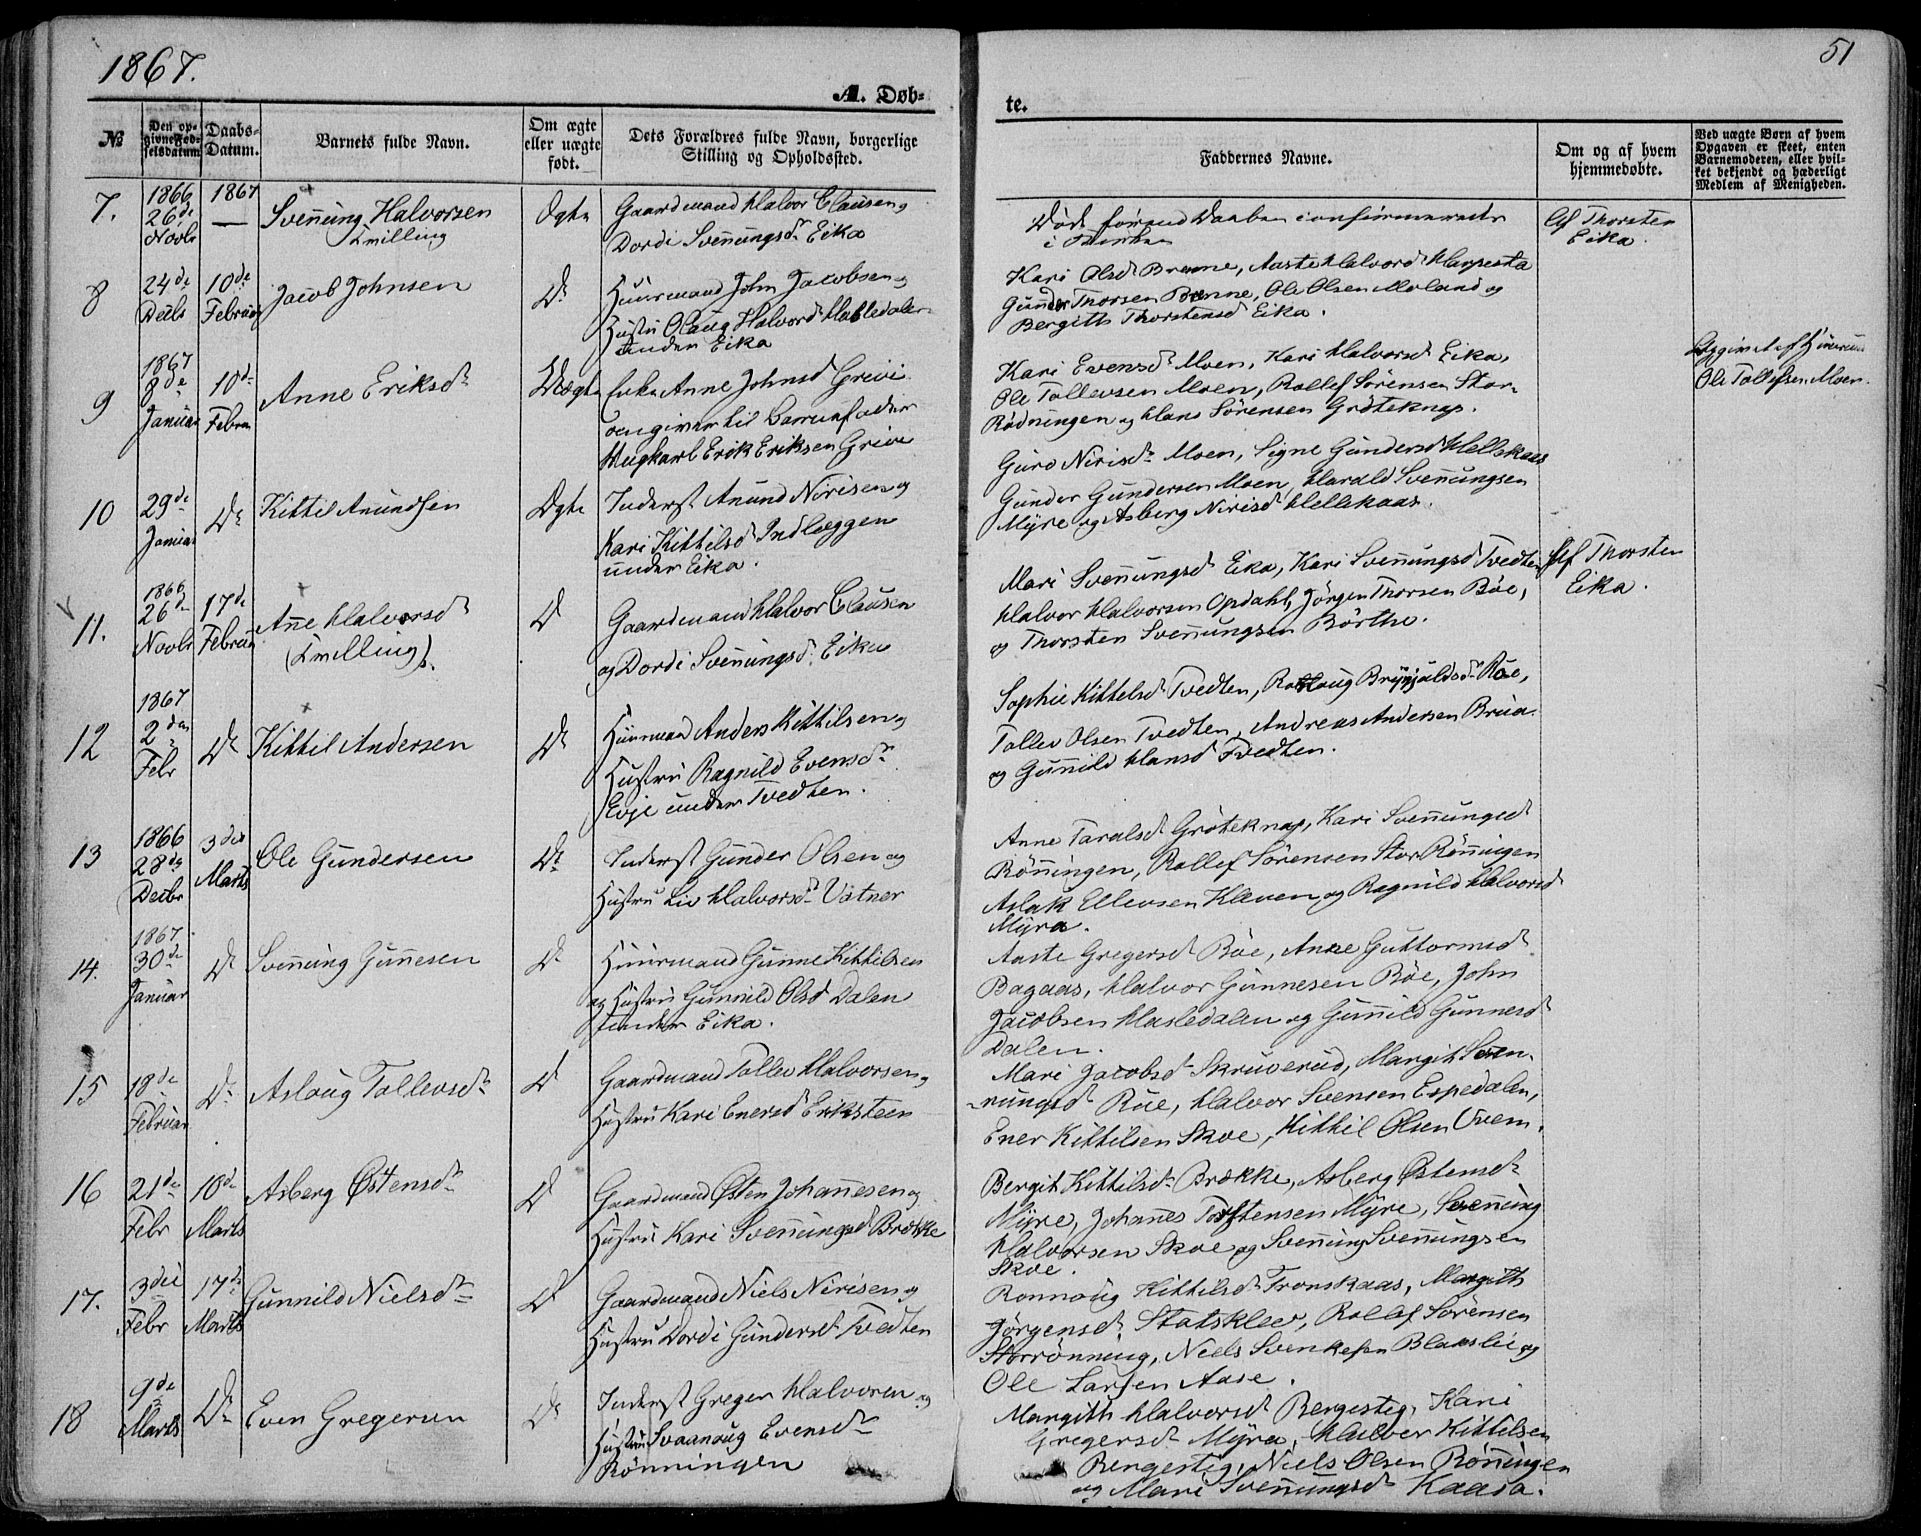 1867.
51
A. Døb-
te.
№
Den op-
givne Fød-
selsdatum
Daabs-
Datum.
Barnets fulde Navn.
Om ægte
eller uægte
født.
Dets Forældres fulde Navn, borgerlige
Stilling og Opholdssted.
Faddernes Navne.
Om og af hvem
hjemmedøbte.
Ved uægte Børn af hvem
Opgaven er skeet, enten
Barnemoderen, eller hvil-
ket bekjendt og hæderligt
Medlem af Menigheden.
7.
1866
26de
Novbr
1867
—
Svennung Halvorsen
Tvilling
Ægte
Gaardmand Halvor Clausen og
Dordi Svennungsd Eika
Død førend Daaben confirmerede
i Kirken
Af Thorsten
Eika.
8
24de
Decbr
10de
Februar
Jacob Johnsen
Do
Huusmand John Jacobsen og
Hustru Olaug Halvorsd Hasledalen
under Eika
Kari Olsd Brenne, Aaste Halvorsd
Gunder Thorsen Brenne, Ole Olsen Moland og
Bergitte Thorstensd Eika.
9
1867
8de
Januar
10de
Februar
Anne Eriksd
Uægte
Pike Anne Johnsd Grivi
opgiver til Barnefader
Ungkarl Erik Eriksen Grivi
Kari Evensd Moen, Kari Halvorsd Eika,
Ole Tollevsen Moen, Rollef Sørensen Stor-
Rødningen og Hans Sørensen Grøteknap.
Opgivet af
Ole Tollefsen Moen.
10
29de
Januar
Do
Kittil Anundsen
Ægte
Inderst Anund Nirisen og
Kari Kittilsd Indlæggen
under Eika.
Guro Nirisd Moen, Signe Gundersd Hellekaas
Gunder Gundersen Moen, Harald Svennungsen
Myre og Asberg Nirisd Hellekaas.
11.
1866
26de
Novbr
17de
Februar
Anne Halvorsd
(Tvilling).
Do
Gaardmand Halvor Clausen
og Dordi Svennungsd Eika
Mari Svennungsd Eika, Kari Svennungsd Tvedten
Halvor Halvorsen Opdahl, Jörgen Thorsen Böe,
og Thorsten Svennungsen Börthe.
Af Thorsten
Eika.
12
1867
2den
Febr
Do
Kittil Andersen
Do
Huusmand Anders Kittilsen og
Hustru Ragnild Evensd
Evje under Tvedten.
Sophie Kittelsd Tvedten, Brynjulfsd Roe,
Tollev Olsen Tvedten, Andreas Andersen Brua
og Gunnild Hansd Tvedten.
13
1866
28de
Decbr
3die
Marts
Ole Gundersen
Do
Inderst Gunder Olsen og
Hustru Liv Halvorsd Vatner
Anne Taralsd Gröteknap, Kari Svennungsd
Rönningen, Rollef Sörensen Stor Rönningen
Aslak Ellevsen Kleven og Ragnild Halvorsd
Myra.
14.
1867
30de
Januar
Do
Svennung Gunnesen
Do
Huusmand Gunne Kittilsen
og Hustru Gunnild Olsd Dalen
under Eika.
Aaste Gregersd Böe, Anne Guttormsd
Bagaas, Halvor Gunnesen Böe, John
Jacobsen Hasledalen og Gunnild Gunnesd
Dalen.
15
18de
Februar
Do
Aslaug Tollevsd
Do
Gaardmand Tollev Halvorsen og
Hustru Kari Enersd Eriksteen
Mari Jacobsd Skruverud, Margit Sven-
nungsd Rue, Halvor Svensen Espedalen,
Ener Kittilsen Skoe, Kittil Olsen Vrem.
16
21de
Febr
10de
Marts
Asberg Østensd
Do
Gaardmand Østen Johannesen og
Hustru Kari Svennungsd Brække
Bergit Kittilsd Brække, Asberg Østensd
Myre, Johannes Torstensen Myre, Svennung
Halvorsen Skoe og Svennung Svennungsen
Skoe.
17.
3die
Febr
17de
Marts
Gunnild Nielsd
Do
Gaardmand Niels Nirisen og
Hustru Dordi Gundersd Tvedten
Ronnoug Kittilsd Fronskaas, Margith
Jörgensd Statskleev, Rollef Sörensen
Storrönning, Niels Svenkesen Blaaslie og
Ole Larsen Aase.
18
9de
Marts
Do
Even Gregersen
Do
Inderst Greger Halvorsen og
Hustru Svaanoug Evensd
Rönningen
Margith Halvorsd Bergestig, Kari
Gregersd Myra, Halvor Kittilsen
Bergestig, Niels Olsen Rönningen
og Mari Svennungsd Kaasa.